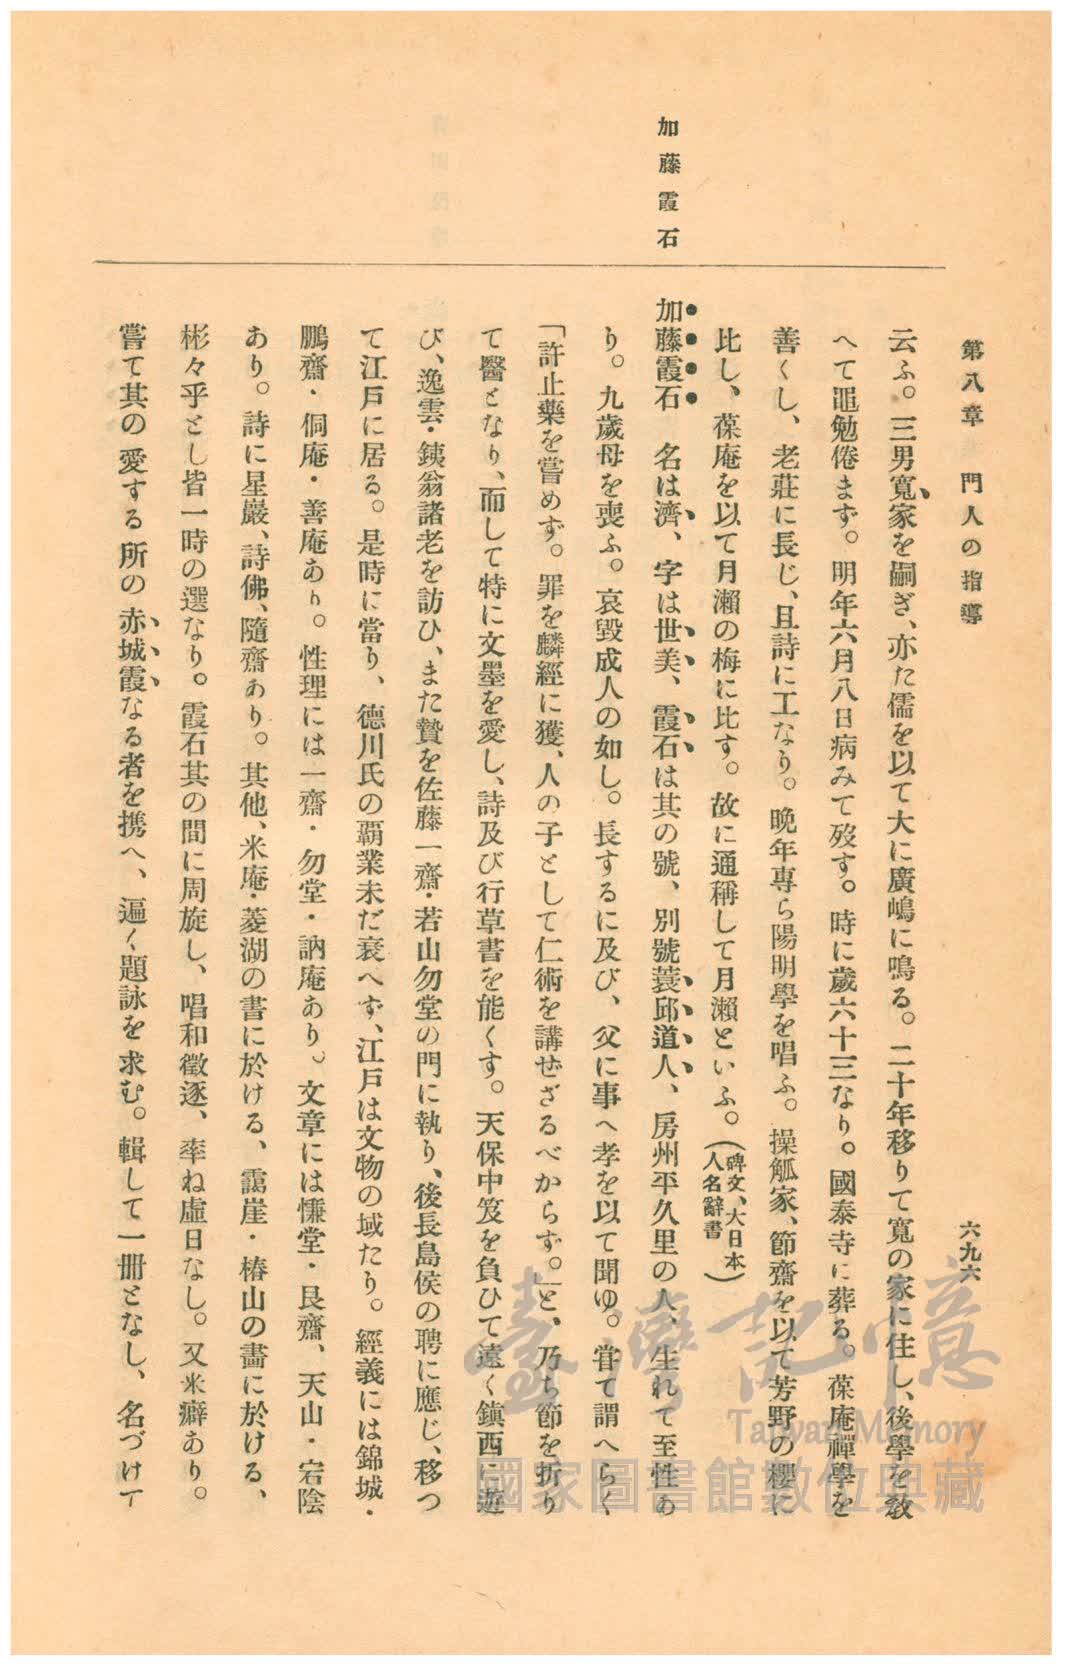 第八章　門人の指導
六九六
云ふ。三男寬家を嗣ぎ、亦た儒を以て大に廣嶋に鳴る。二十年移りて寬の家に住し、後學を敎
へて黽勉倦まず。明年六月八日病みて歿す。時に歲六十三なり。國泰寺に葬る。葆庵禪學を
善くし、老莊に長じ、且詩に工なり。晚年專ら陽明學を唱ふ。操觚家、節齋を以て芳野の櫻に
比し、葆庵を以て月瀨の梅に比す。故に通稱して月瀨といふ。（碑文、大日本人名辭書）
加藤霞石
加藤霞石　名は濟、字は世美、霞石は其の號、別號蓑邱道人、房州平久里の人、生れて至性あ
り。九歲母を喪ふ。哀毀成人の如し。長ずるに及び、父に事へ孝を以て聞ゆ。甞て謂へらく
「許止藥を嘗めず。罪を麟經に獲、人の子として仁術を講ぜざるべからず。」と、乃ち節を折り
て醫となり、而して特に文墨を愛し、詩及び行草書を能くす。天保中笈を負ひて遠く鎭西に遊
び、逸雲・銕翁諸老を訪ひ、また贄を佐藤一齋・若山勿堂の門に執り、後長島侯の聘に應じ、移つ
て江戶に居る。是時に當り、德川氏の覇業未だ衰へず、江戶は文物の域たり。經義には錦城・
鵬齋・侗庵・善庵あり。性理には一齋・勿堂・訥庵あり。文章には慊堂・艮齋、天山・宕陰
あり。詩に星巖、詩佛、隨齋あり。其他、米庵・菱湖の書に於ける、靄崖・椿山の畵に於ける、
彬々乎とし皆一時の選なり。霞石其の間に周旋し、唱和徵逐、率ね虛日なし。又米癖あり。
嘗て其の愛する所の赤城霞なる者を携へ、遍く題詠を求む。輯して一冊となし、名づけて
臺灣記憶
Taiwan Memory
國家圖書館數位典藏